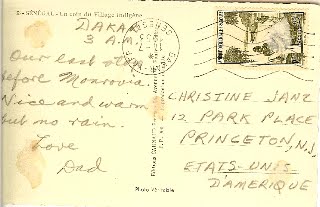 SÉNÉGAL - Un coin du Village indigène
DAKAR
3 A.M.
Our last stop
before Monrovia.
Nice and warm
but no rain.
Love
Dad
CHRISTINE JANZ
12 PARK PLACE
PRINCETON, N.J.
ETATS-UNIS
D'AMERIQUE
DAKAR
Photo véritable